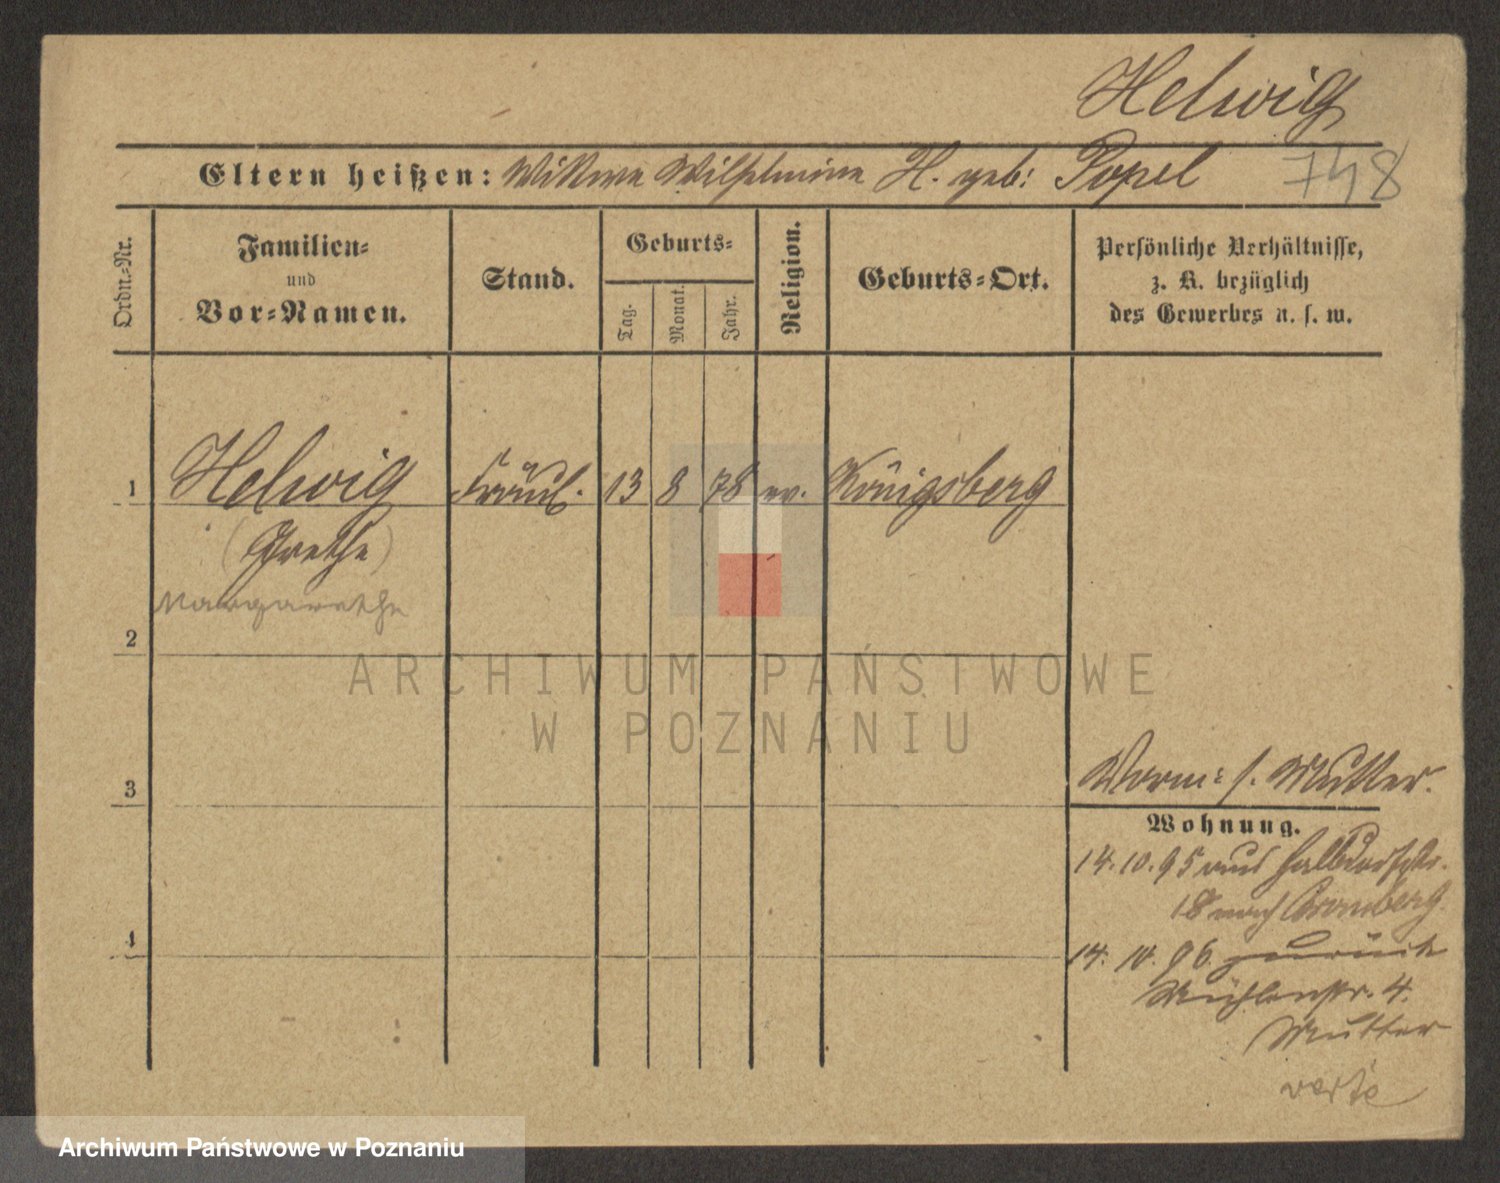 Helwig
Eltern heißen: Wittwe Wilhelmine H. geb: Popel
748
Ordn=Nr.
Familien=
und
Vor=Namen.
Stand.
Geburts=
Tag.
Monat.
Jahr.
Religion.
Geburts=Ort.
Persönliche Verhältnisse,
z. B. bezüglich
des Gewerbes u. s. w.
1 Helwig Fräul. 13 8 78 ev. Königsberg
(Grethe)
Margarethe
2
ARCHIWUM PAŃSTWOWE
W POZNANIU
3
Vorm: s. Mutter.
Wohnung.
14.10.95 aus Halbdorfstr.
18 nach Bromberg
4
14. 10. 96 zurück
Mühlenstr. 4.
Mutter
verte
Archiwum Państwowe w Poznaniu